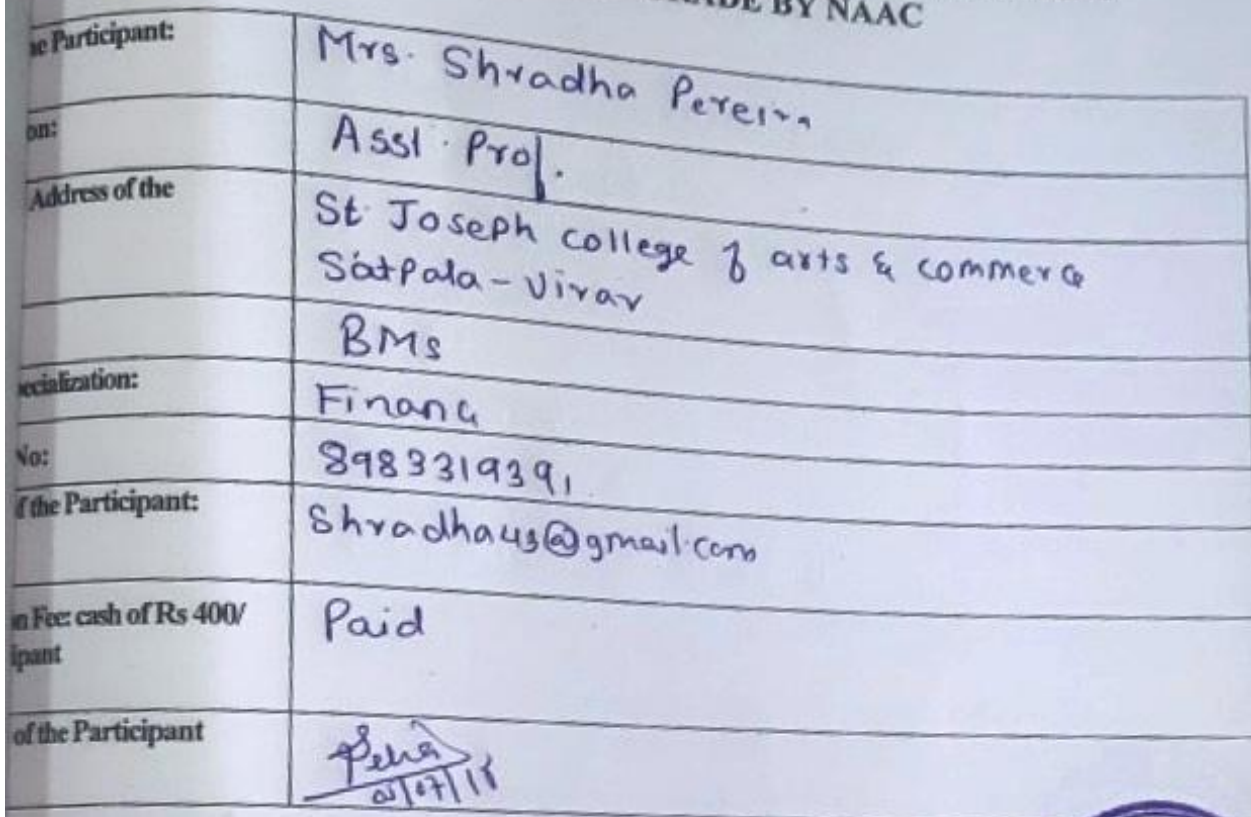 BY NAAC
e Participant:
Mrs. Shradha Pereira
on:
Asst. Prof.
Address of the
St. Joseph college of arts & commerce
Satpala - Virar
BMS
ecialization:
Finance
No:
8983319391
f the Participant:
Shradha43@gmail.com
n Fee: cash of Rs 400/
ipant
Paid
of the Participant